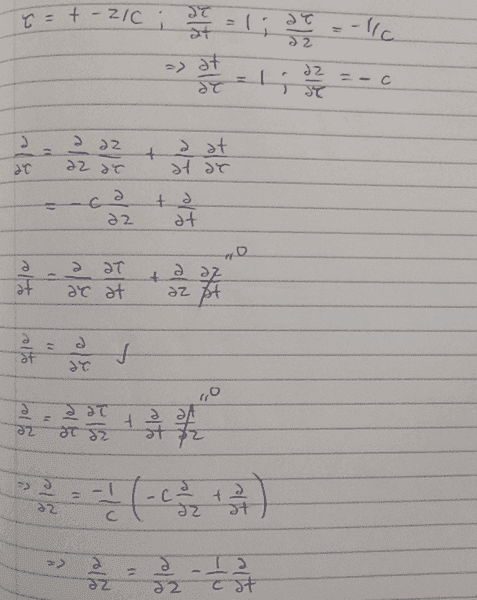 τ = t - z/c ; ∂τ/∂t = 1 ; ∂τ/∂z = -1/c
=> ∂t/∂τ = 1 ; ∂z/∂τ = - c
∂/∂τ = ∂/∂z ∂z/∂τ + ∂/∂t ∂t/∂τ
= - c ∂/∂z + ∂/∂t
∂/∂t = ∂/∂τ ∂τ/∂t + ∂/∂z ∂z/∂t "0
∂/∂t = ∂/∂τ ∫
∂/∂z = ∂/∂τ ∂τ/∂z + ∂/∂t ∂t/∂z "0
=> ∂/∂z = -1/c ( - c ∂/∂z + ∂/∂t )
=> ∂/∂z = ∂/∂z - 1/c ∂/∂t